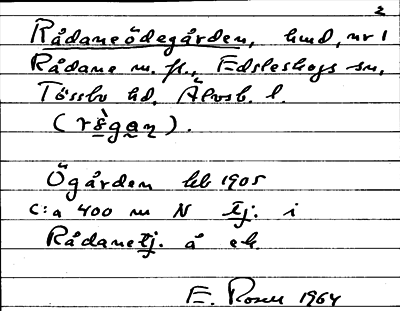 2
Rådaneödegården, hmd, nr 1
Rådane m. fl., Edsleskogs sn,
Tössbo hd, Älvsb. l.
(rö̀gan).
Ögården hb 1905
c:a 400 m N tj. i
Rådanetj. å ek.
E. Rosell 1964